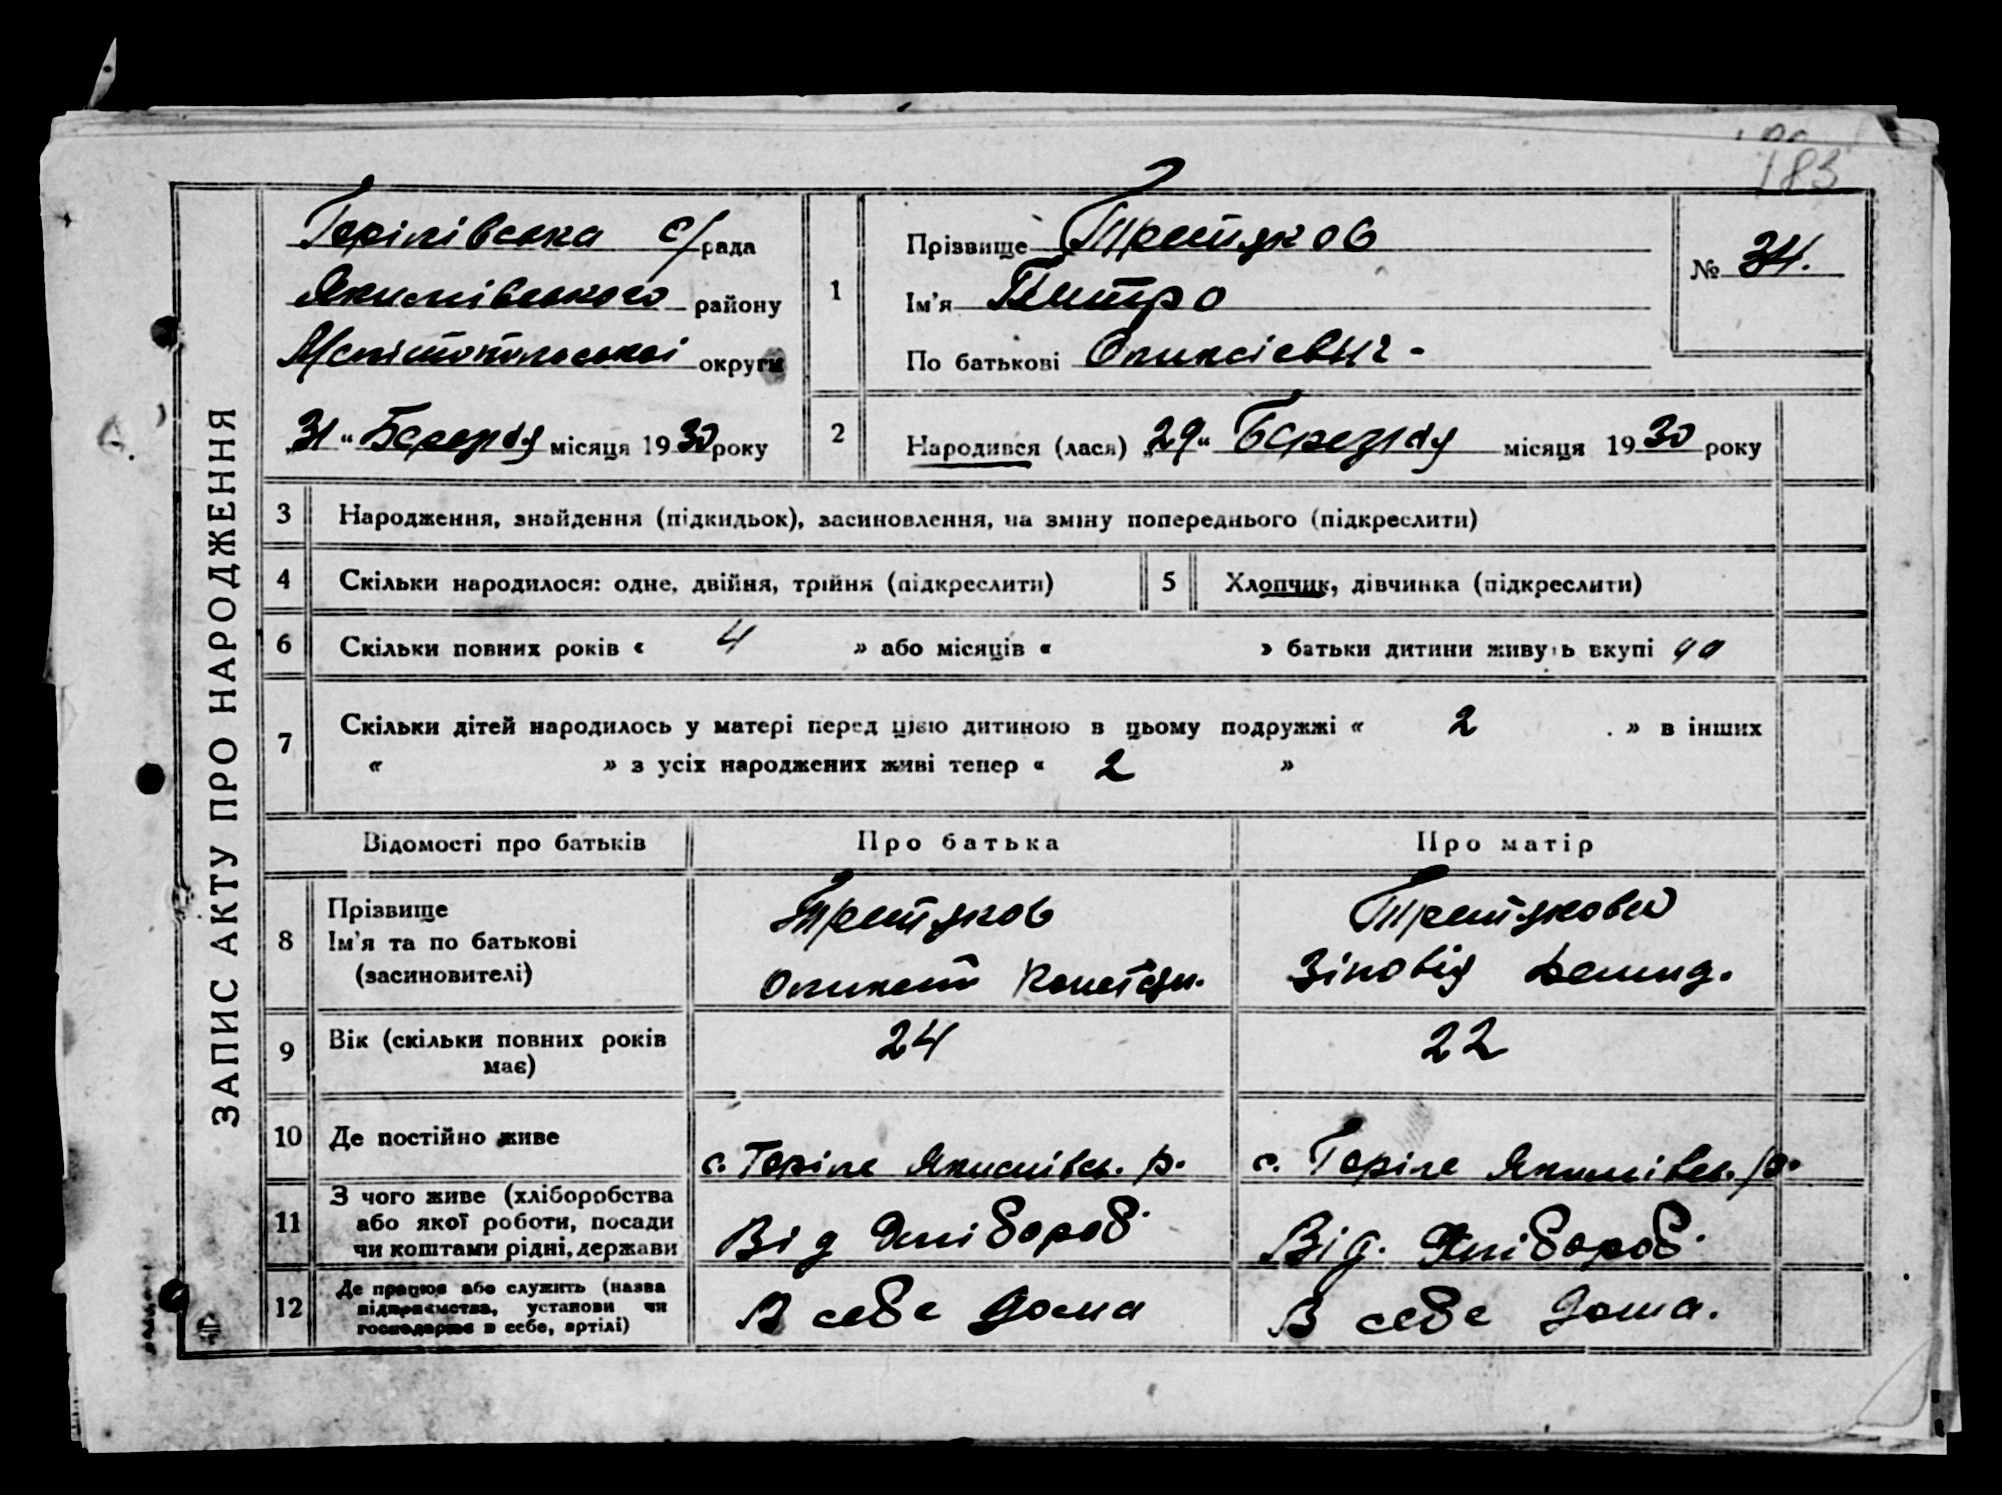 183
ЗАПИС АКТУ ПРО НАРОДЖЕННЯ
Горілівська с/рада
Якимівського району
Мелітопольської округи
31 „ Березня місяця 1930 року
1
Прізвище Третяков
Ім'я Питро
По батькові Оликсієвич -
№ 34.
2
Народився (лася) „29“ Березня місяця 1930 року
3 Народження, знайдення (підкидьок), засиновлення, на зміну попереднього (підкреслити)
4 Скільки народилося: одне, двійня, трійня (підкреслити)
5 Хлопчик, дівчинка (підкреслити)
6 Скільки повних років « 4 » або місяців « » батьки дитини живуть вкупі
7 Скільки дітей народилось у матері перед цією дитиною в цьому подружжі « 2 » в інших
« » з усіх народжених живі тепер « 2 »
Відомості про батьків Про батька Про матір
8 Прізвище
Ім'я та по батькові
(засиновителі)
Третяков
Третякова
Зіновія Демид.
9 Вік (скільки повних років
має)
24
22
10 Де постійно живе
с. Горіле Якимівсь. р.
с. Горіле Якимівсь. р.
11 З чого живе (хліборобства
або якої роботи, посади
чи коштами рідні, держави
Від хлібороб.
Від. хлібороб.
12 Де працює або служить (назва
підприємства, установи чи
господарює в себе, артілі)
В себе дома
В себе дома.